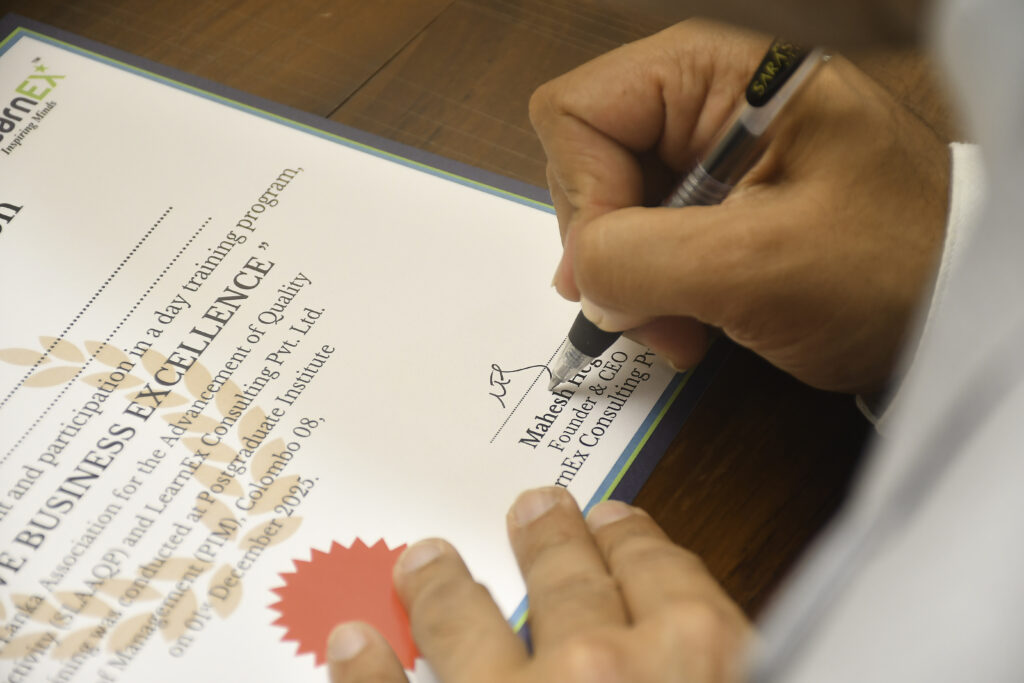 arnEX
Inspiring Minds
on
nt and participation in a day training program,
VE BUSINESS EXCELLENCE ”
Lanka Association for the Advancement of Quality
ctivity (SLAAQP) and LearnEx Consulting Pvt. Ltd.
ining was conducted at Postgraduate Institute
of Management (PIM), Colombo 08,
December 2025.
Mahesh
Founder & CEO
rnEx Consulting Pv
SARA